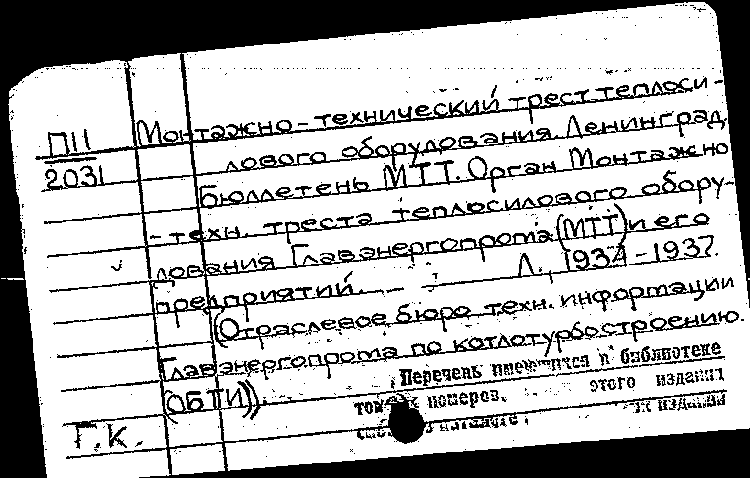 П11
2031
Монтажно-технический трест теплоси-
лового оборудования. Ленинград.
Бюллетень МТТ. Орган Монтажно
-техн. треста теплосилового обору-
дования Главэнергопрома (МТТ) и его
предприятий. — Л., 1934-1937.
(Отраслевое бюро техн. информации
Главэнергопрома по котлотурбостроению.
(ОБТИ)).
Перечень имеющихся в библиотеке
номеров, этого издания
Г.К.